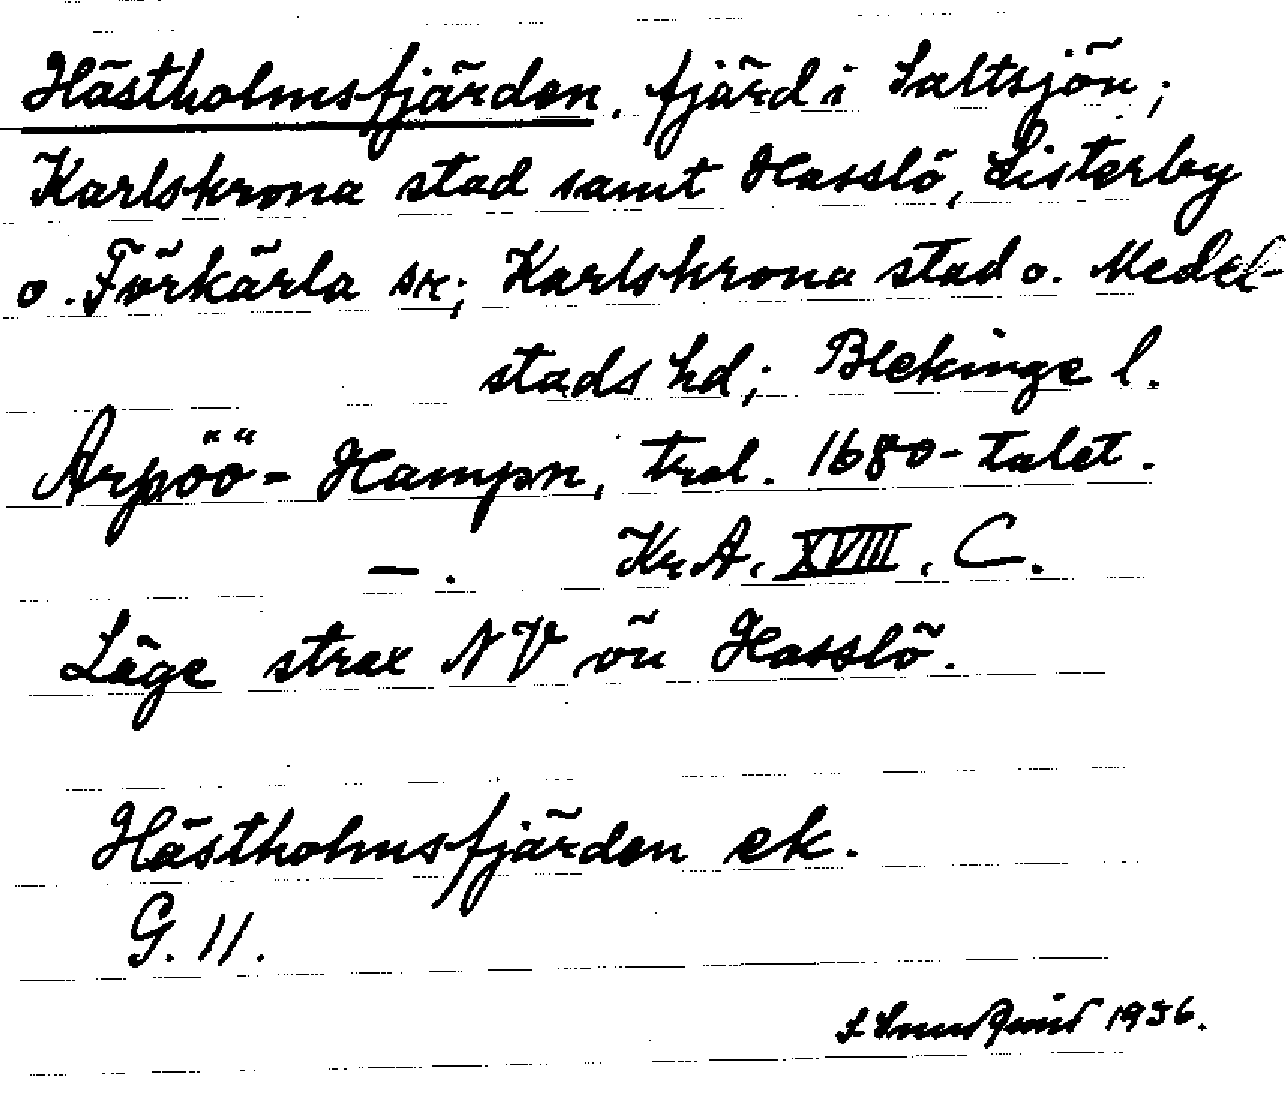 Hästholmsfjärden, fjärd i Saltsjön;
Karlskrona stad samt Hasslö, Listerby
o. Förkärla sn; Karlskrona stad o. Medel-
stads hd; Blekinge l.
Arpöö-Hampn, trol. 1680-talet.
—. Kr.A. XVIII. C.
Läge strax NV om Hasslö.
Hästholmsfjärden ek.
G. 11.
1936.